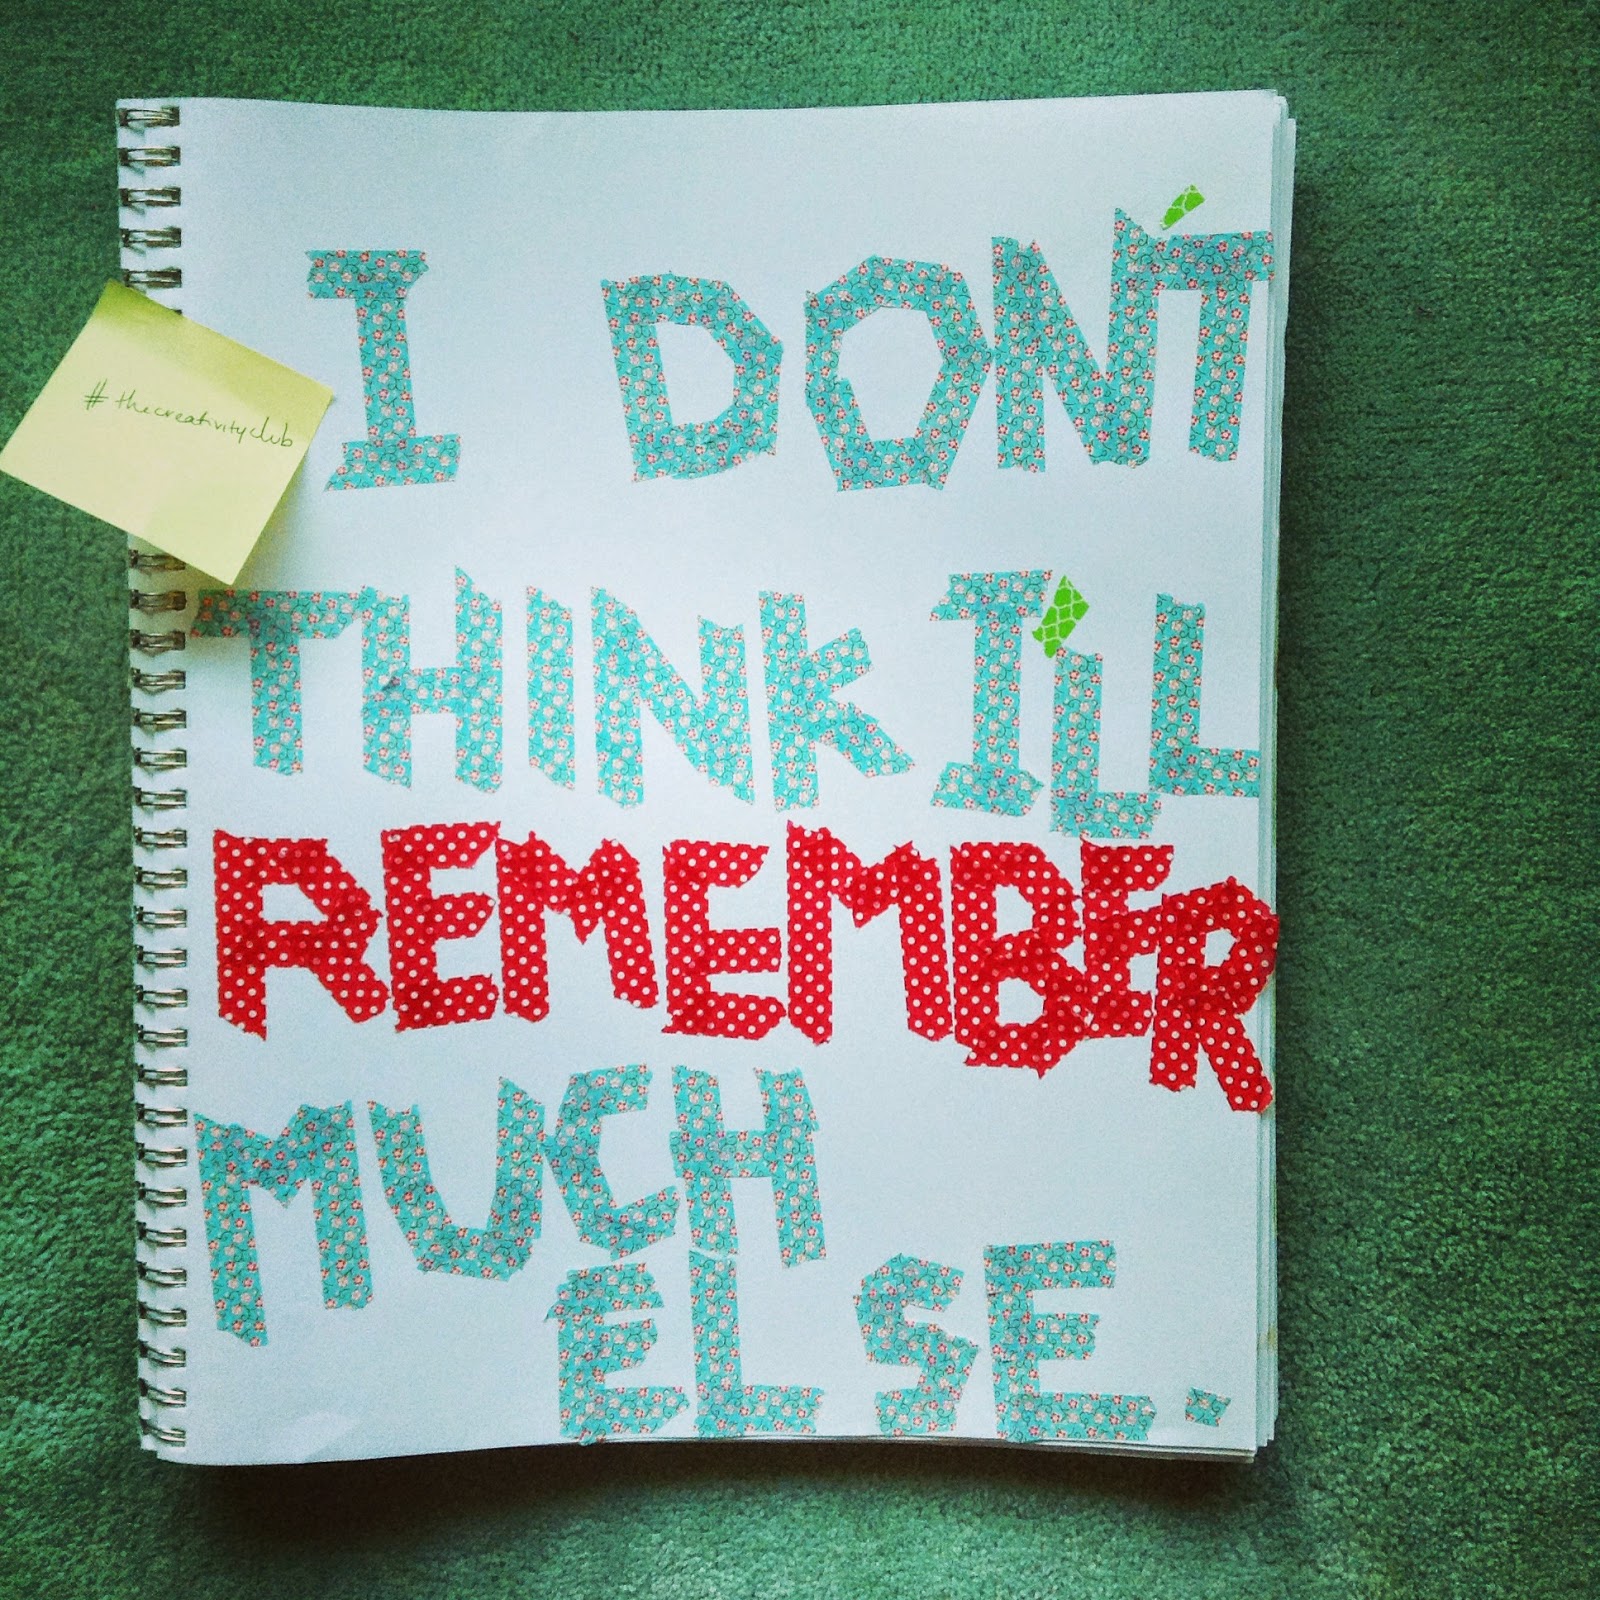 I DON'T
#thecreativityclub
THINK I'LL
REMEMBER
MUCH
ELSE.